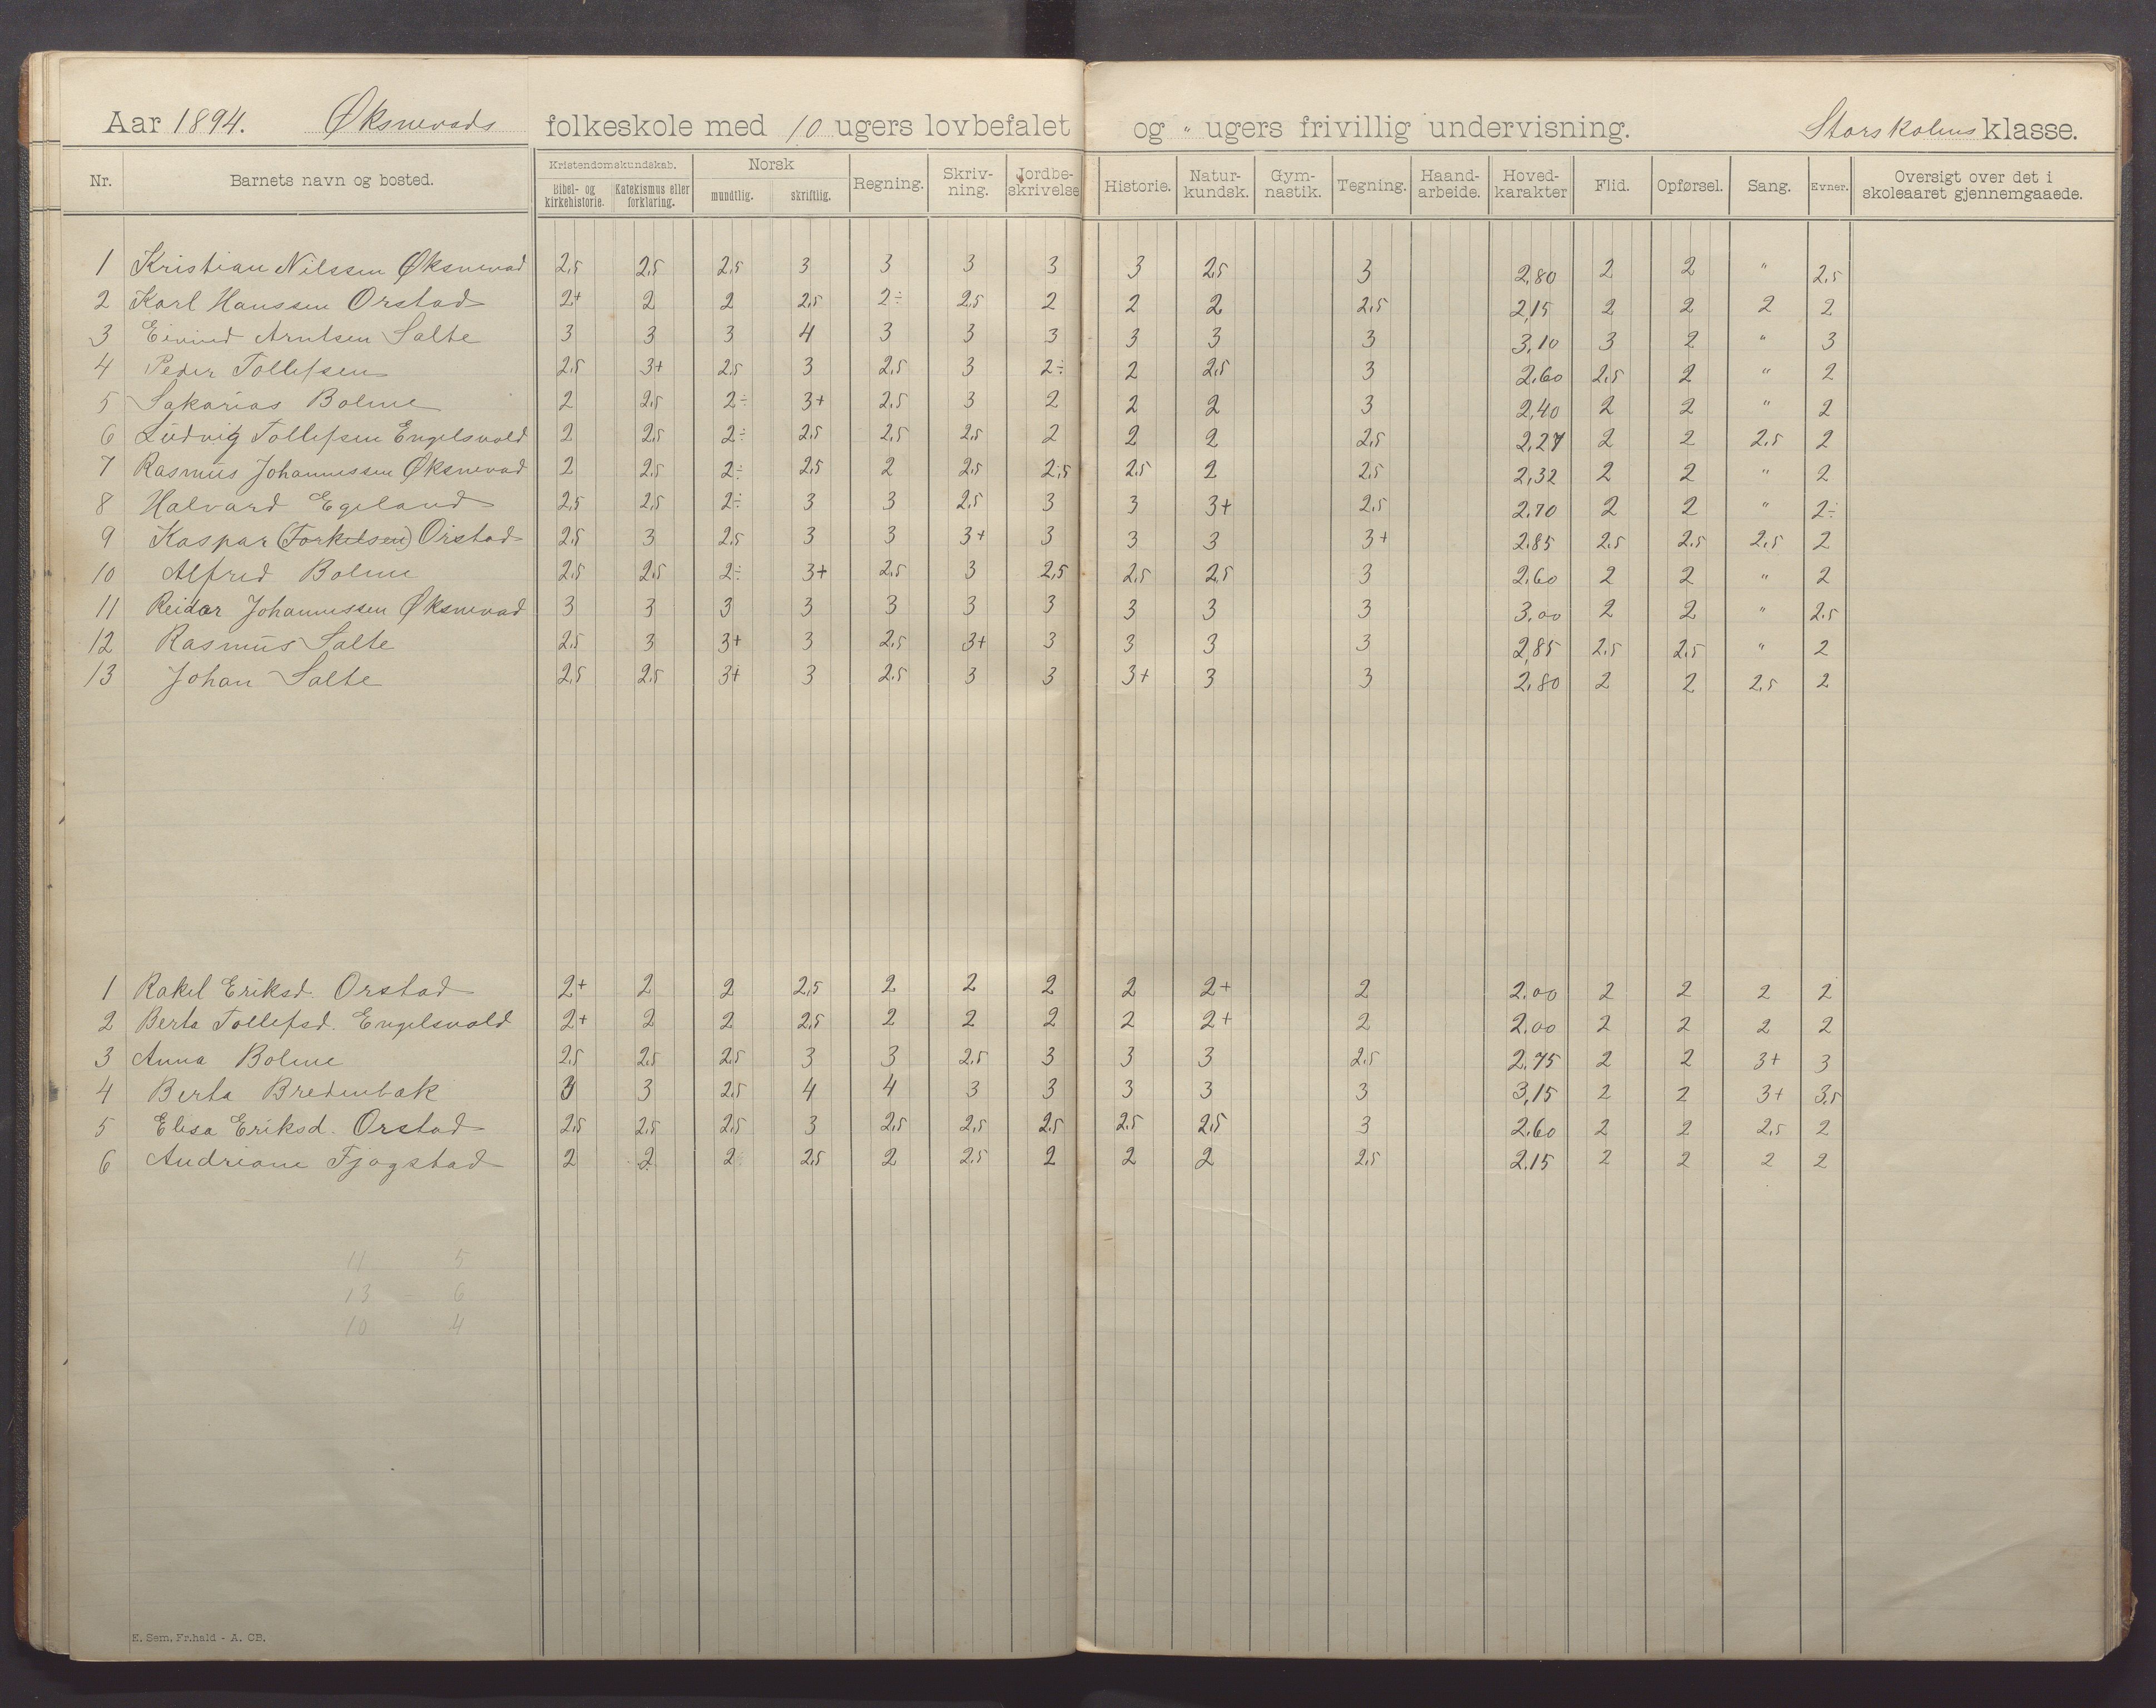 Aar 1894. Øksnevads folkeskole med 10 ugers lovbefalet og " ugers frivillig undervisning. Storskolens klasse.
Nr. Barnets navn og bosted. Kristendomskundskab. Bibel- og kirkehistorie. Katekismus eller forklaring. Norsk mundtlig. skriftlig. Regning. Skriv-ning. Jordbe-skrivelse Historie. Natur-kundsk. Gym-nastik. Tegning. Haand-arbeide. Hoved-karakter Flid. Opførsel. Sang. Evner. Oversigt over det i skoleaaret gjennemgaaede.
1 Kristian Nilssen Øksnevad 2,5 2,5 2,5 3 3 3 3 3 2,5 3 2,80 2 2 " 2,5
2 Karl Hanssen Orstad 2+ 2 2 2,5 2÷ 2,5 2 2 2 2,5 2,15 2 2 2 2
3 Eivind Arntsen Salte 3 3 3 4 3 3 3 3 3 3 3,10 3 2 " 3
4 Peder Tollefsen 2,5 3+ 2,5 3 2,5 3 2÷ 2 2,5 3 2,60 2,5 2 " 2
5 Sakarias Bolme 2 2,5 2÷ 3+ 2,5 3 2 2 2 3 2,40 2 2 " 2
6 Ludvig Tollefsen Engelsvold 2 2,5 2÷ 2,5 2,5 2,5 2 2 2 2,5 2,27 2 2 2,5 2
7 Rasmus Johannessen Øksnevad 2 2,5 2÷ 2,5 2 2,5 2,5 2,5 2 2,5 2,32 2 2 " 2
8 Halvard Egeland 2,5 2,5 2÷ 3 3 2,5 3 3 3+ 2,5 2,70 2 2 " 2÷
9 Kaspar (Torkelsen) Orstad 2,5 3 2,5 3 3 3+ 3 3 3 3+ 2,85 2,5 2,5 2,5 2
10 Alfred Bolme 2,5 2,5 2÷ 3+ 2,5 3 2,5 2,5 2,5 3 2,60 2 2 " 2
11 Reidar Johannessen Øksnevad 3 3 3 3 3 3 3 3 3 3 3,00 2 2 " 2,5
12 Rasmus Salte 2,5 3 3+ 3 2,5 3+ 3 3 3 3 2,85 2,5 2,5 " 2
13 Johan Salte 2,5 2,5 3+ 3 2,5 3 3 3+ 3 3 2,80 2 2 2,5 2
1 Rakel Eriksd. Orstad 2+ 2 2 2,5 2 2 2 2 2+ 2 2.00 2 2 2 2
2 Berta Tollefsd. Engelsvold 2+ 2 2 2,5 2 2 2 2 2+ 2 2.00 2 2 2 2
3 Anna Bolme 2,5 2,5 2,5 3 3 2,5 3 3 3 2,5 2.75 2 2 3+ 3
4 Berta Bredenbak 3 3 2,5 4 4 3 3 3 3 3 3,15 2 2 3+ 3,5
5 Elisa Eriksd. Orstad 2,5 2,5 2,5 3 2,5 2,5 2,5 2,5 2,5 3 2.60 2 2 2,5 2
6 Andriane Fjogstad 2 2 2 2,5 2 2,5 2 2 2 2,5 2.15 2 2 2 2
11 5
13 - 6
10 4
E. Sem, Fr.hald - A. CB.